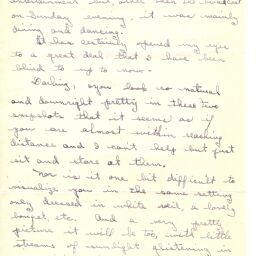 entertainment but, other than the broadcast
on Sunday evening, it was mainly
dining and dancing.
It has certainly opened my eyes
to a great deal that I have been
blind to up to now.
Darling, you look so natural
and downright pretty in these two
snapshots that it seems as if
you are almost within reaching
distance and I can't help but just
sit and stare at them.
Nor is it one bit difficult to
visualize you in the same setting
only dressed in white veil, a lovely
bouquet, etc. And a very pretty
picture it will be too, with little
streams of sunlight glistening in